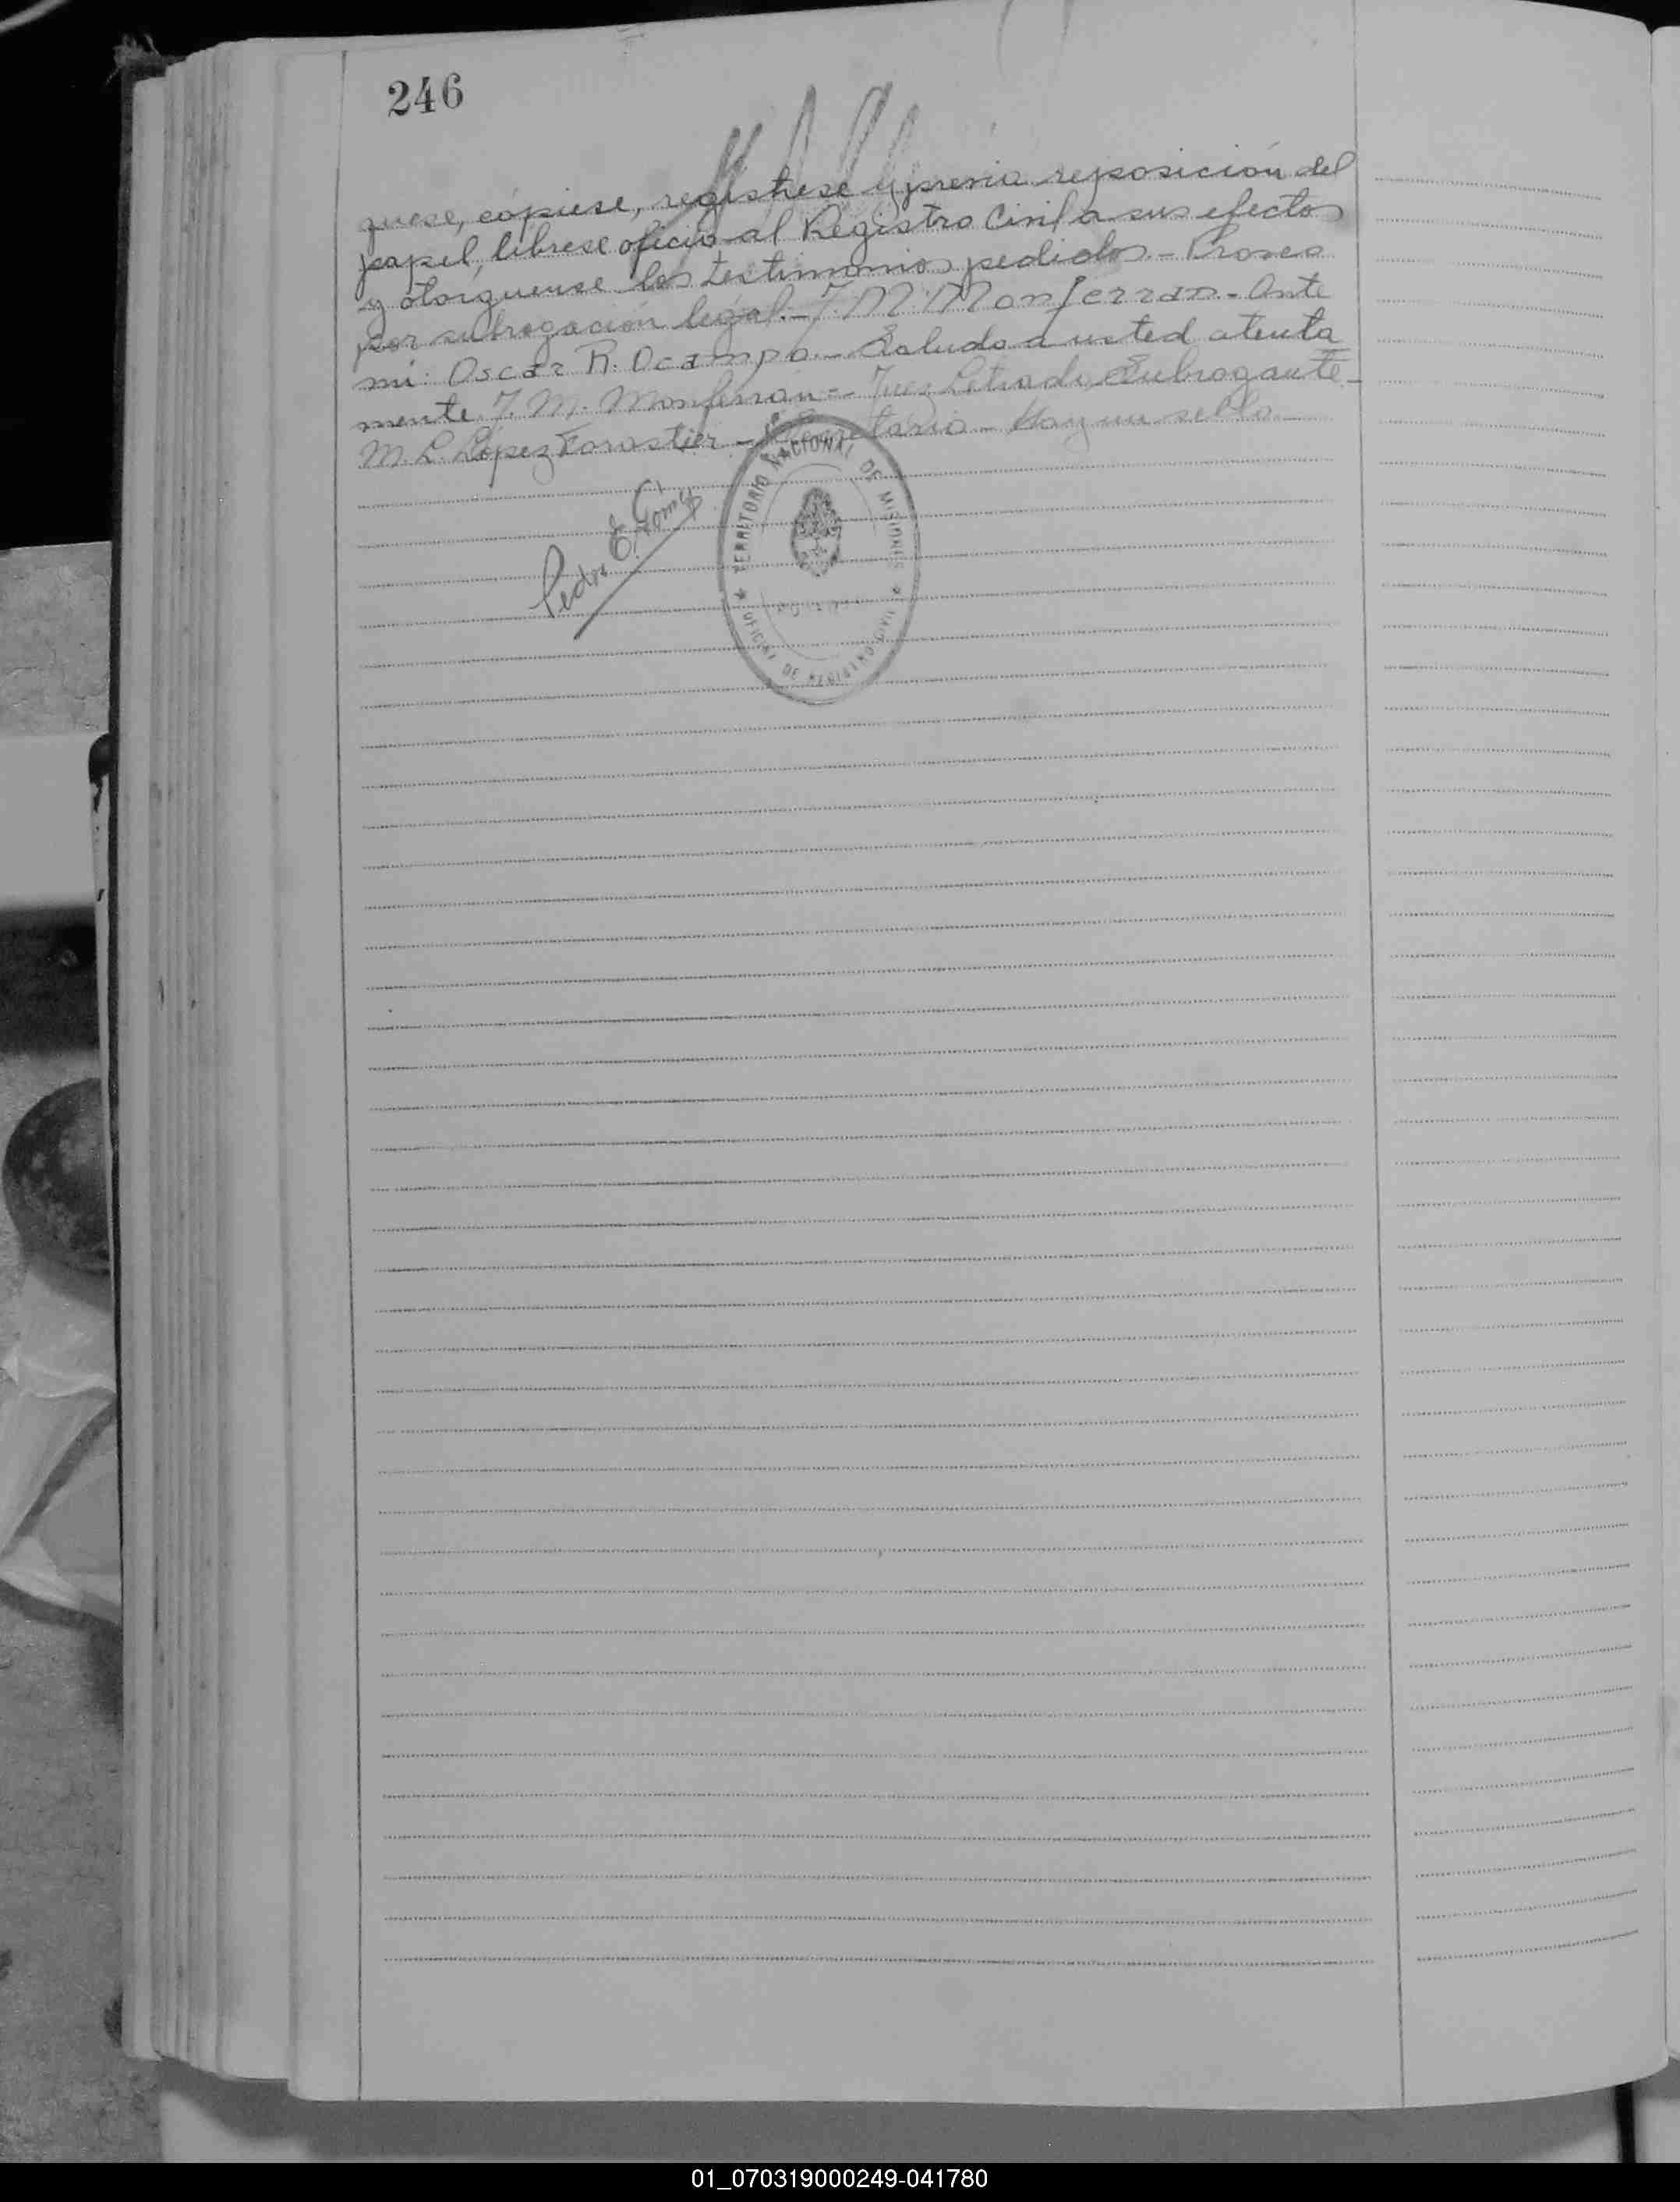 246
quese, cópiese, regístrese y previa reposición del
papel, líbrese oficio al Registro Civil a sus efectos
y otórguense los testimonios pedidos.- Proveo
por subrogación legal.- J. M. Monferran.- Ante
mi: Oscar R. Ocampo.- Saludo a usted atenta
mente J. M. Monferrán - Juez Letrado Subrogante -
M. L. López Forastier - Secretario - Hay un sello -
Pedro E. Gomez
TERRITORIO NACIONAL DE MISIONES
OFICINA DE REGISTRO CIVIL
01_070319000249-041780